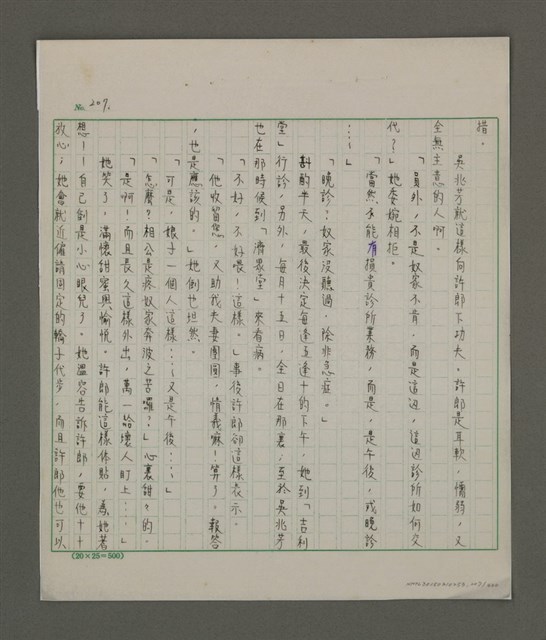 No. 207.
措。
吳兆芳就這樣向許郎下功夫。許郎是耳軟,懦弱,又
全無主意的人啊。
「員外,不是奴家不肯,而是這迎,這迎診所如何交
代?」她委婉相拒。
「當然不能有損貴診所業務,而是,是午後,或晚診
⋯⋯」
「晚診?奴家沒聽過,除非急症。」
斟酌半天,最後決定每逢五逢十的下午,她到「吉利
堂」行診,另外,每月十五日,全日在那裏;至於吳兆芳
也在那時候到「濟眾堂」來看病。
「不好,不好喂!這樣。」事後許郎卻這樣表示。
「他收留您,又助我夫妻團圓,情義嘛!算了。報答
,也是應該的。」她倒也坦然。
「可是,娘子一個人這樣⋯⋯又是午後⋯⋯」
「怎麼?相公是疼奴家奔波之苦囉?」心裏甜?的。
「是啊!而且長久這樣外出,萬一給壞人盯上⋯⋯」
她笑了,滿懷甜蜜與愉悅。許郎能這樣体貼,為她著
想——自己倒是小心眼兒了。她溫容告訴許郎,要他十十
放心;她會就近僱請固定的轎子代步,而且許郎他也可以
(20×25=500)